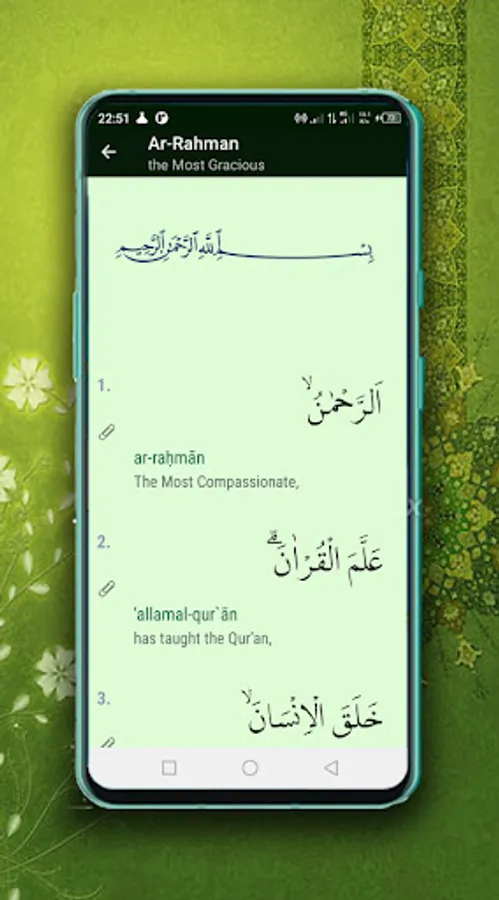 22:51
Ar-Rahman
the Most Gracious
بِسْمِ اللَّهِ الرَّحْمَٰنِ الرَّحِيمِ
1.
اَلرَّحْمٰنُۙ
ar-raḥmān
The Most Compassionate,
2.
عَلَّمَ الْقُرْاٰنَۗ
'allamal-qur`ān
has taught the Qur'an,
3.
خَلَقَ الْاِنْسَانَۙ